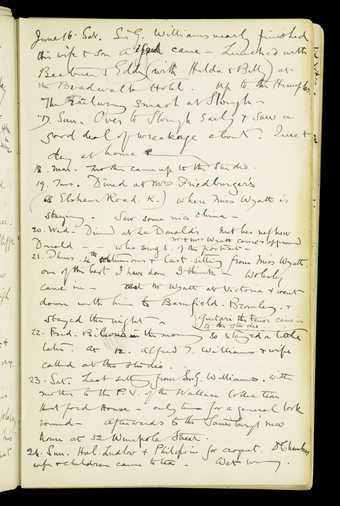 June 16. Sat. Sir G. Williams nearly finished
his wife & son came – Lunched with
& Eddy (with Hilda & Bill) at
the Broadwalk Hotel. Up to the
The Railway smash at Slough –
17. Sun. Over to Slough early & saw a
good deal of wreckage about. Quiet
day at home
18. Mon. Mother came up to the Studio.
19. Tues. Dined at Mrs Friedburger's
(8 Elsham Road. K.) where Miss Wyatt is
staying. Saw some nice china –
20. Wed. Dined at La Donalds Met her nephew
Donald – who Mr & Mrs Wyatt came & approved
of the portrait –
21. Thurs. & last sitting from Miss Wyatt
one of the best I have done I think –
came in – Mr Wyatt at Victoria & went
down with him to Barnfield. Bromley. &
stayed the night –
22. Frid. in the morning so stayed a little
later. At 12. Alfred T. Williams & wife
called at the studio.
23. Sat. Last sitting from Sir G. Williams. With
mother to the P.V. of the Wallace Collection
Hertford House – only time for a general look
round – afterwards to the new
house at 52 Wimpole Street.
24. Sun. Hal Ludlow & Philip in for croquet. D Chambers
wife & children came to tea. – Wet